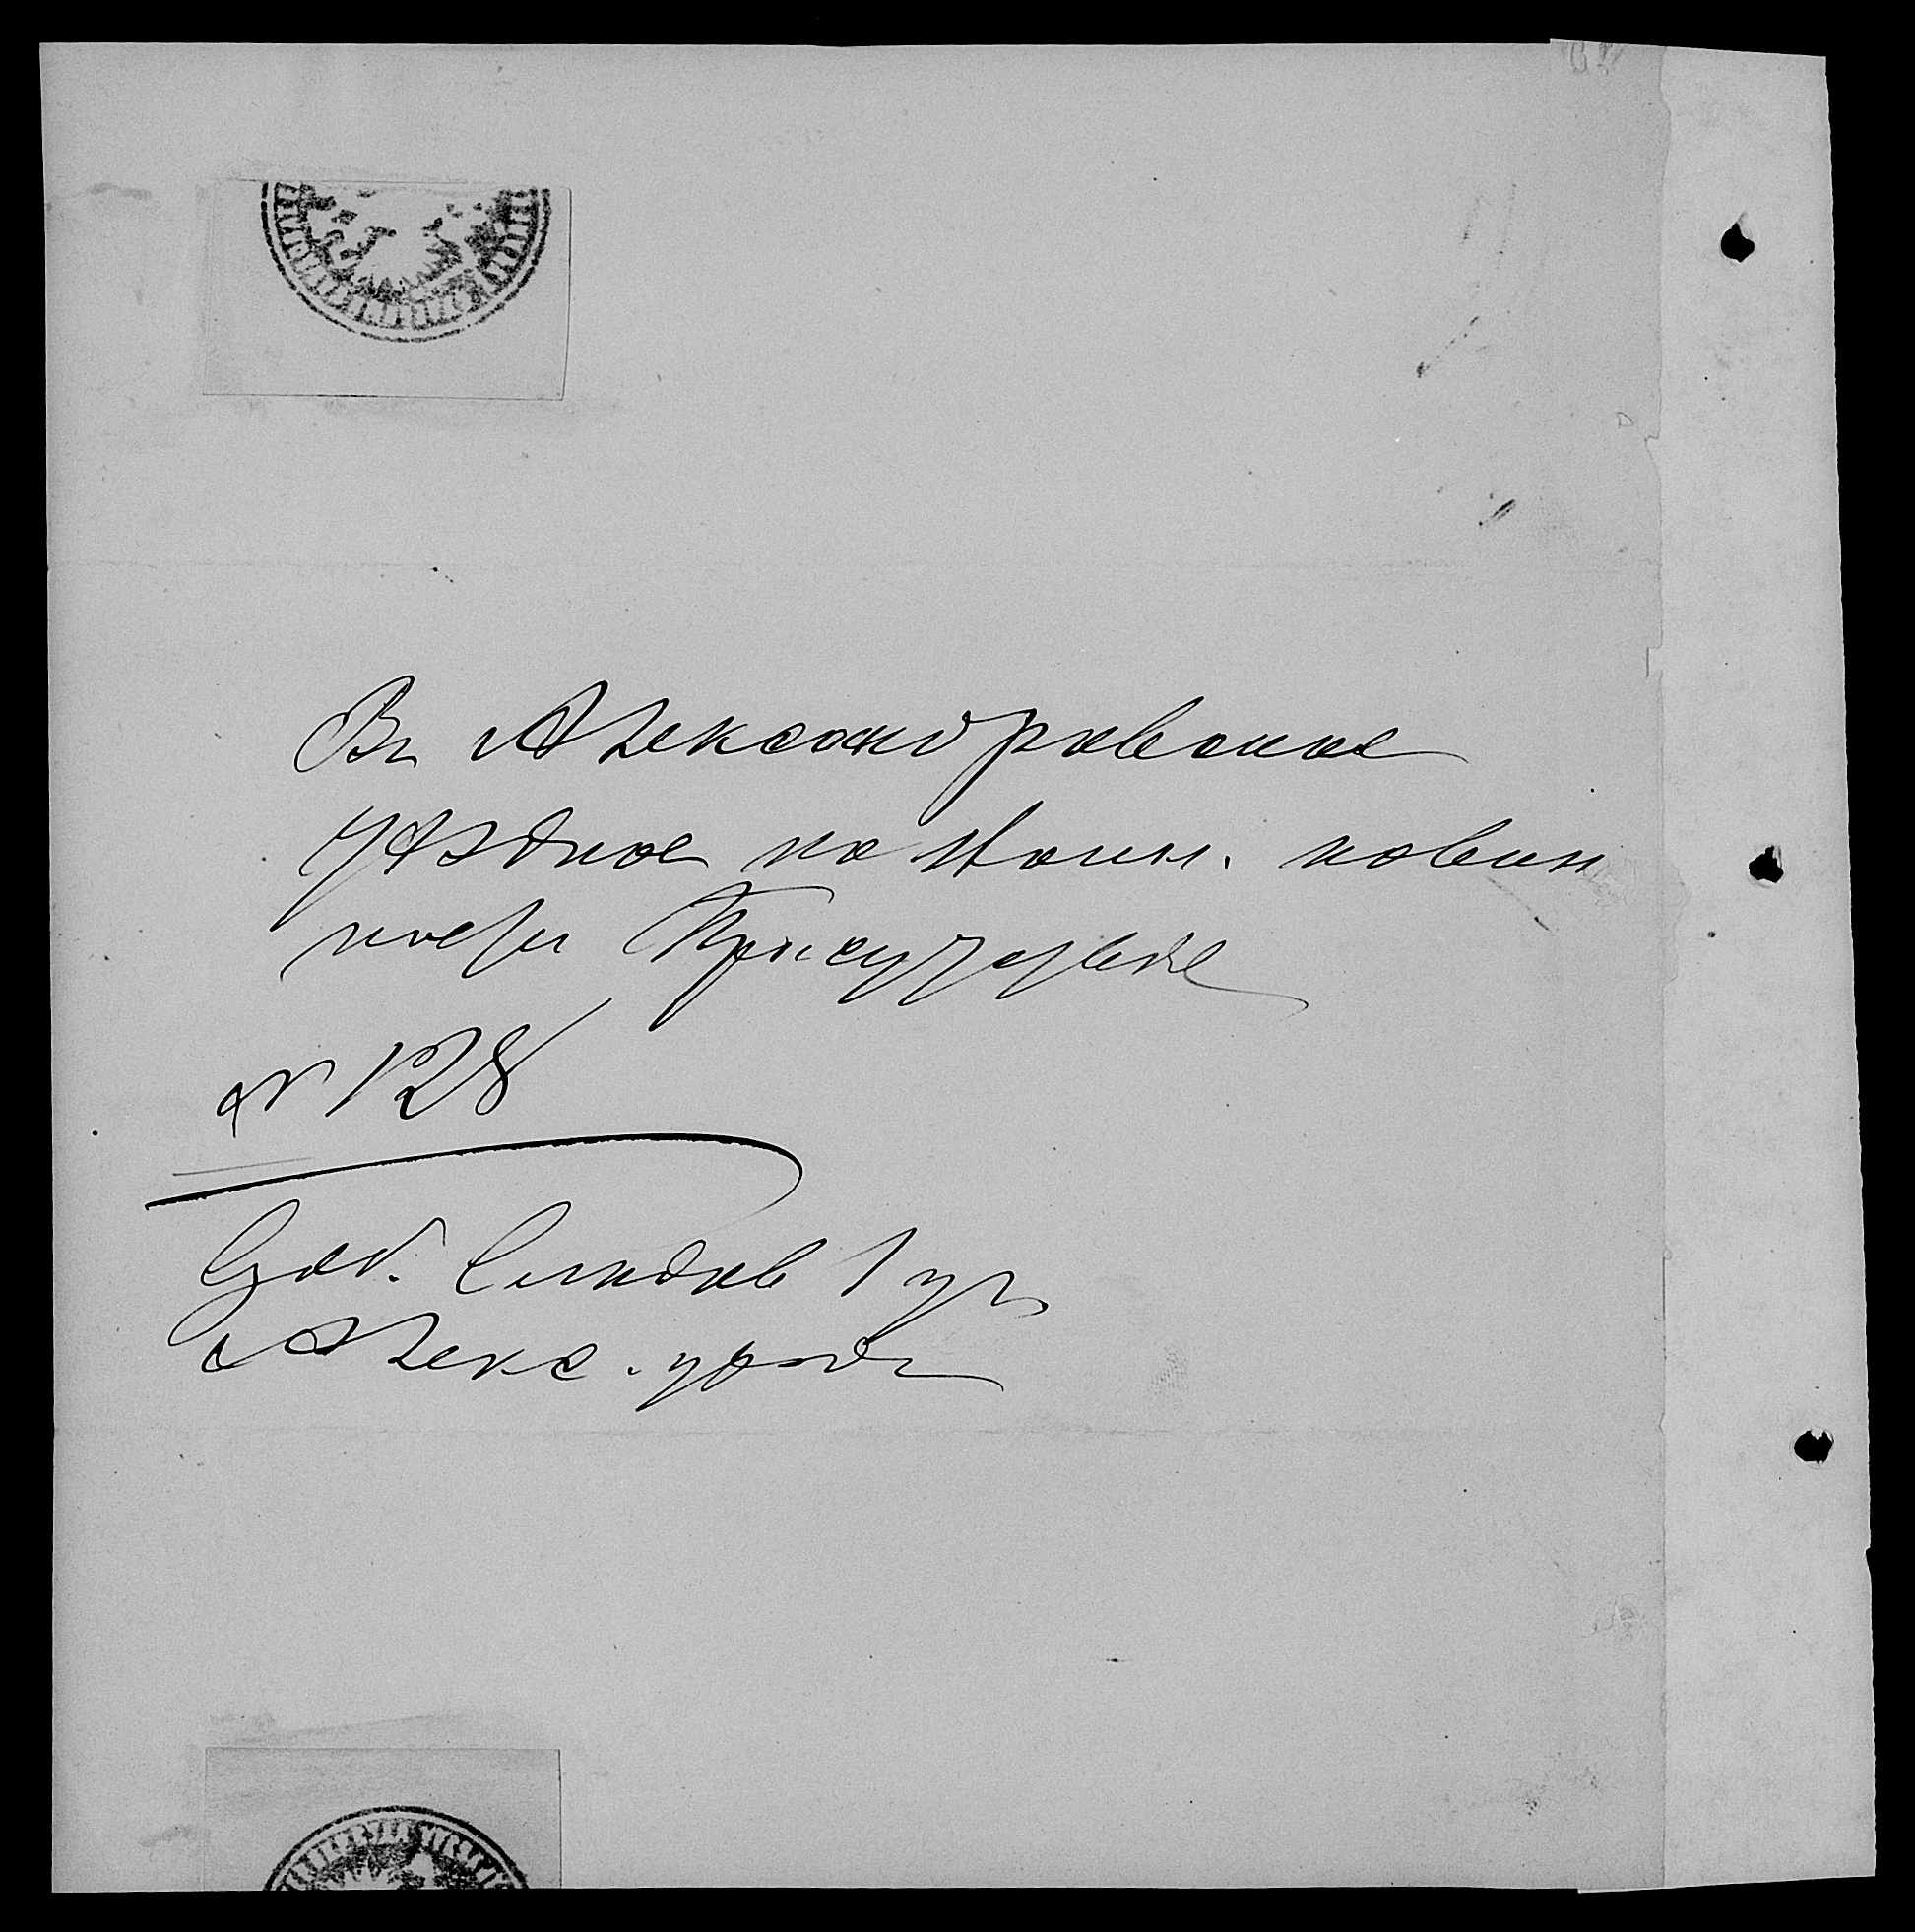 Въ Александровское
уѣздное по Воин. повин
ности Присутствіе
№ 128
Суд. Слѣдов 1 уч.
Алекс. уѣзда